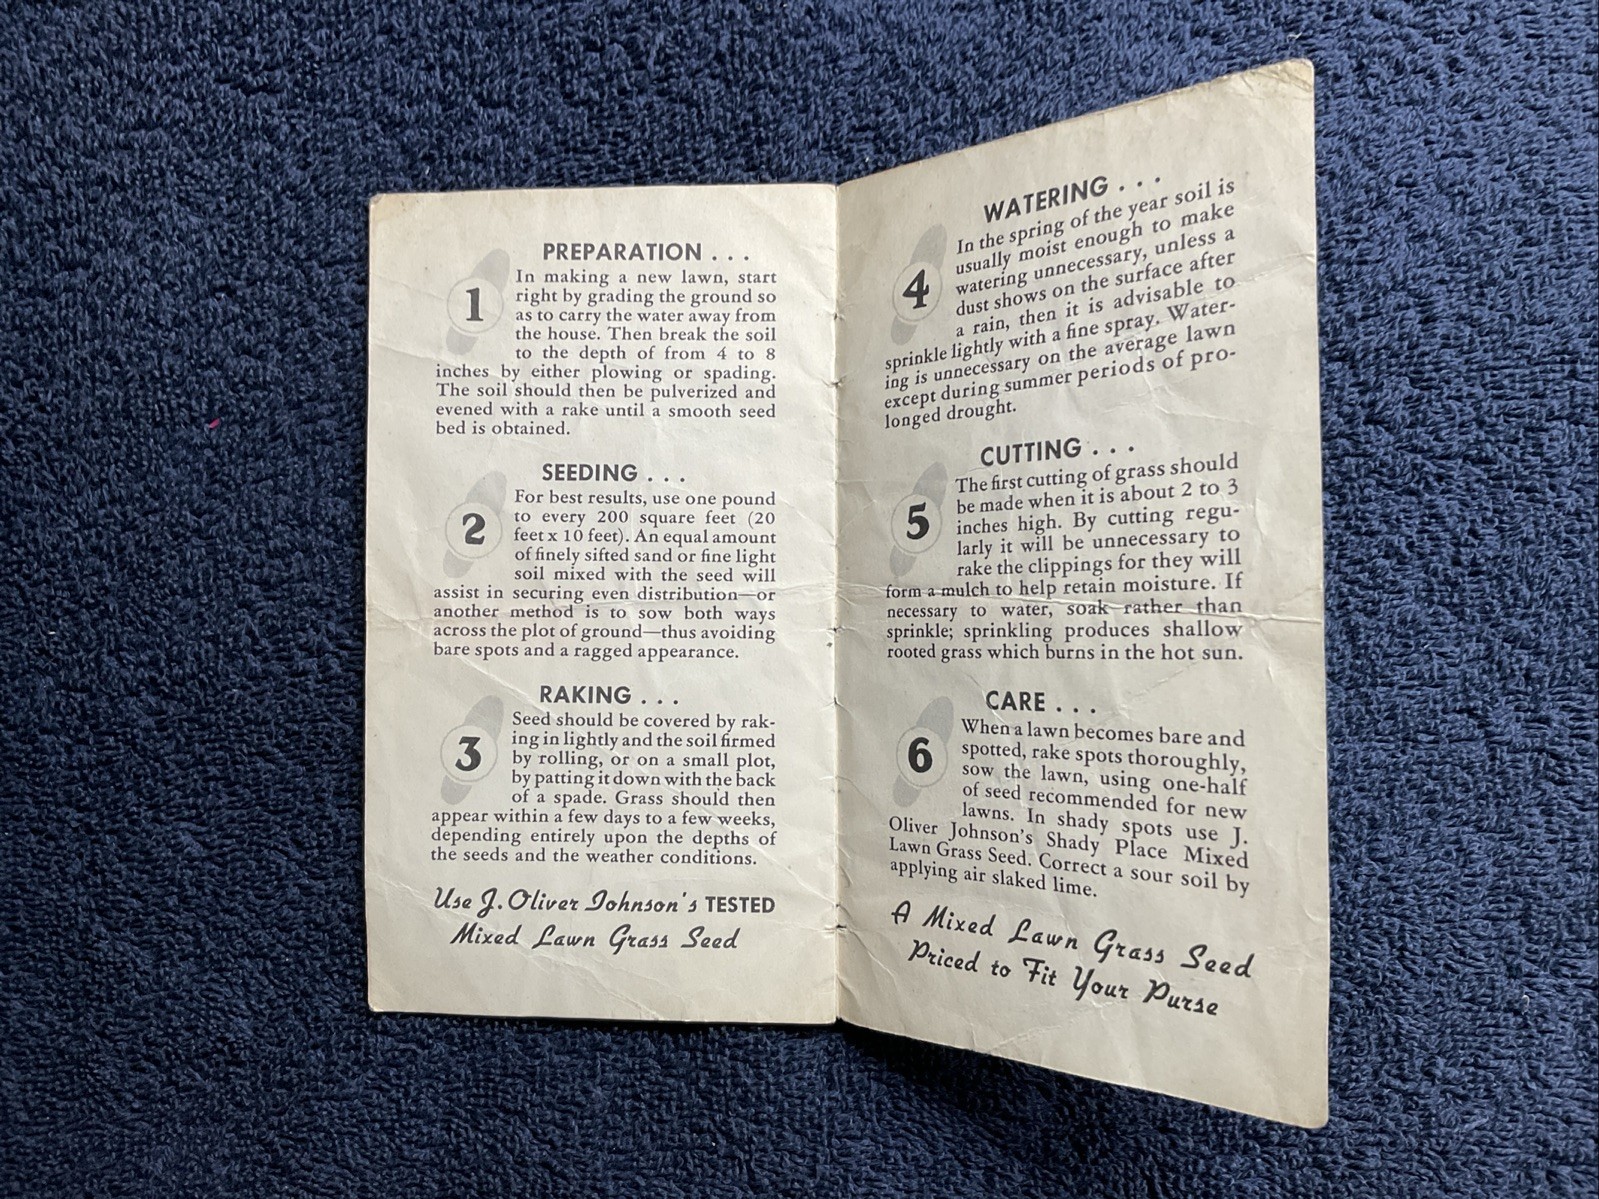 PREPARATION . . .
1
In making a new lawn, start
right by grading the ground so
as to carry the water away from
the house. Then break the soil
to the depth of from 4 to 8
inches by either plowing or spading.
The soil should then be pulverized and
evened with a rake until a smooth seed
bed is obtained.
SEEDING . . .
2
For best results, use one pound
to every 200 square feet (20
feet x 10 feet). An equal amount
of finely sifted sand or fine light
soil mixed with the seed will
assist in securing even distribution—or
another method is to sow both ways
across the plot of ground—thus avoiding
bare spots and a ragged appearance.
RAKING . . .
3
Seed should be covered by rak-
ing in lightly and the soil firmed
by rolling, or on a small plot,
by patting it down with the back
of a spade. Grass should then
appear within a few days to a few weeks,
depending entirely upon the depths of
the seeds and the weather conditions.
Use J. Oliver Johnson's TESTED
Mixed Lawn Grass Seed
WATERING . . .
4
In the spring of the year soil is
usually moist enough to make
watering unnecessary, unless a
dust shows on the surface after
a rain, then it is advisable to
sprinkle lightly with a fine spray. Water-
ing is unnecessary on the average lawn
except during summer periods of pro-
longed drought.
CUTTING . . .
5
The first cutting of grass should
be made when it is about 2 to 3
inches high. By cutting regu-
larly it will be unnecessary to
rake the clippings for they will
form a mulch to help retain moisture. If
necessary to water, soak rather than
sprinkle; sprinkling produces shallow
rooted grass which burns in the hot sun.
CARE . . .
6
When a lawn becomes bare and
spotted, rake spots thoroughly,
sow the lawn, using one-half
of seed recommended for new
lawns. In shady spots use J.
Oliver Johnson's Shady Place Mixed
Lawn Grass Seed. Correct a sour soil by
applying air slaked lime.
A Mixed Lawn Grass Seed
Priced to Fit Your Purse